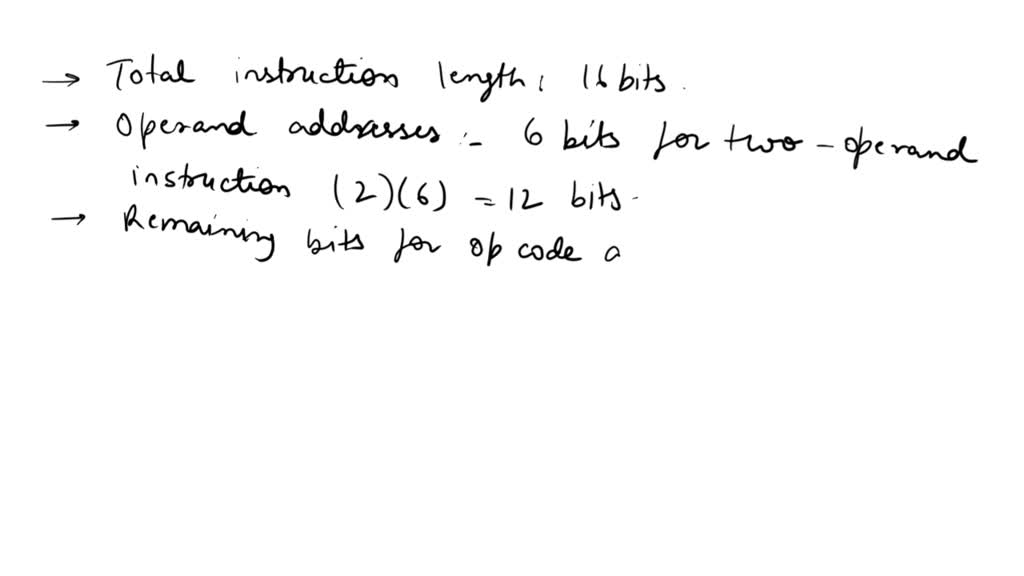 → Total instruction length: 16 bits.
→ Operand addresses :- 6 bits for two-operand
instruction (2)(6) = 12 bits.
→ Remaining bits for op code a